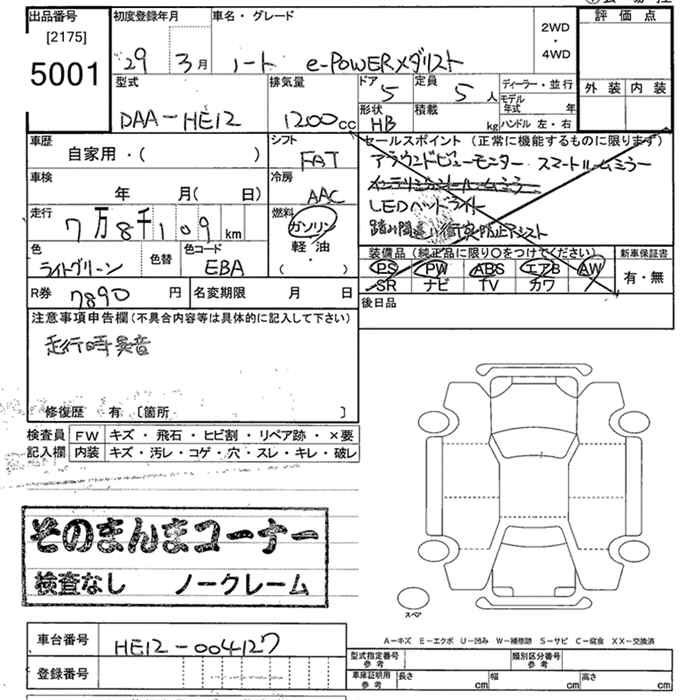 出品番号
[2175]
5001
初度登録年月
29 3月
車名・グレード
ノート e-POWERメダリスト
2WD
・
4WD
評価点
外装 内装
型式
DAA-HE12
排気量
1200cc
ドア 5
定員 5人
形状 HB
積載 kg
ディーラー・並行
モデル年式 年
ハンドル 左・右
車歴
自家用・( )
シフト
FAT
車検
年 月( 日)
冷房
AAC
走行
7万8千109km
燃料
ガソリン
軽油
・
( )
色
ライトグリーン
色替
色コード
EBA
R券 7890円
名変期限 月 日
セールスポイント (正常に機能するものに限ります)
アラウンドビューモニター スマートルームミラー
インテリジェントルームミラー
LEDヘッドライト
踏み間違い衝突防止アシスト
装備品 (純正品に限り○をつけてください)
PS PW ABS エアB AW
SR ナビ TV カワ
新車保証書
有・無
後日品
注意事項申告欄(不具合内容等は具体的に記入して下さい)
走行時異音
修復歴 有 [箇所 ]
検査員記入欄
FW キズ・飛石・ヒビ割・リペア跡・×要
内装 キズ・汚レ・コゲ・穴・スレ・キレ・破レ
そのまんまコーナー
検査なし ノークレーム
スペア
A-キズ E-エクボ U-凹み W-補修跡 S-サビ C-腐食 XX-交換済
車台番号
HE12-004127
登録番号
型式指定番号 参考
類別区分番号 参考
車庫証明用 参考
長さ cm
幅 cm
高さ cm